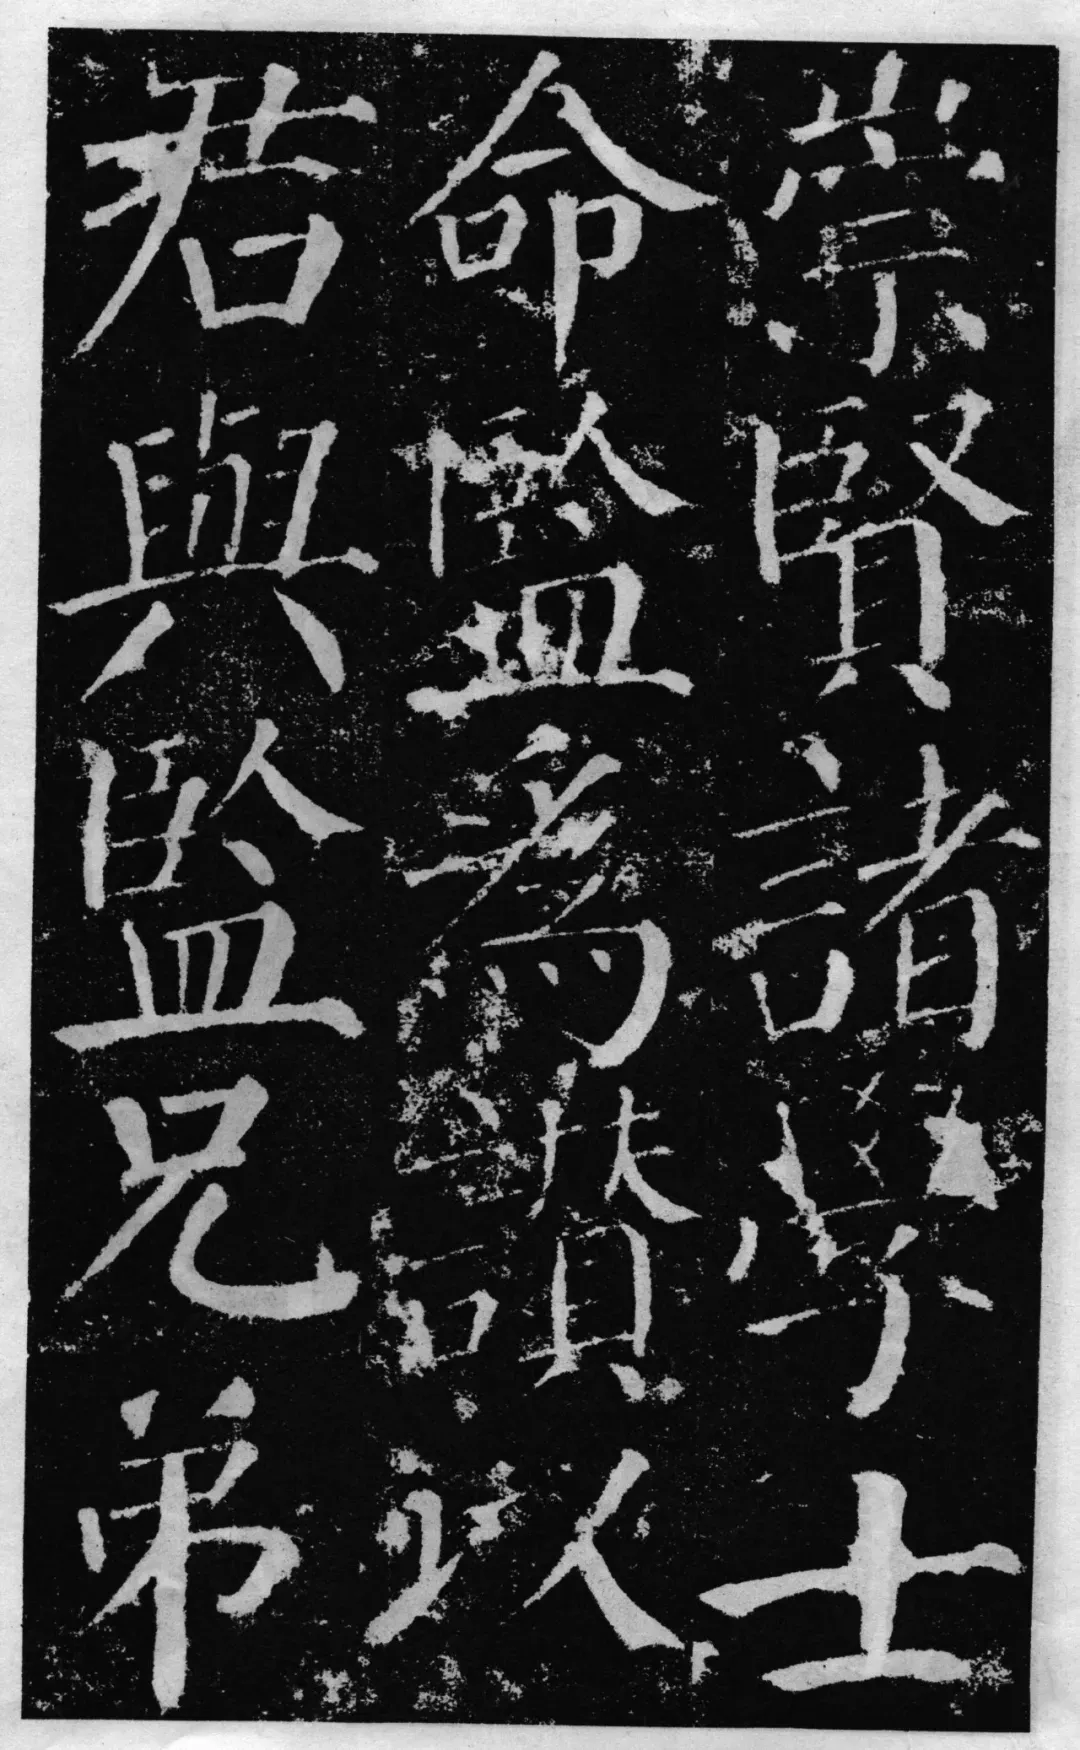 崇賢諸學士
命監為讃以
君與監兄弟